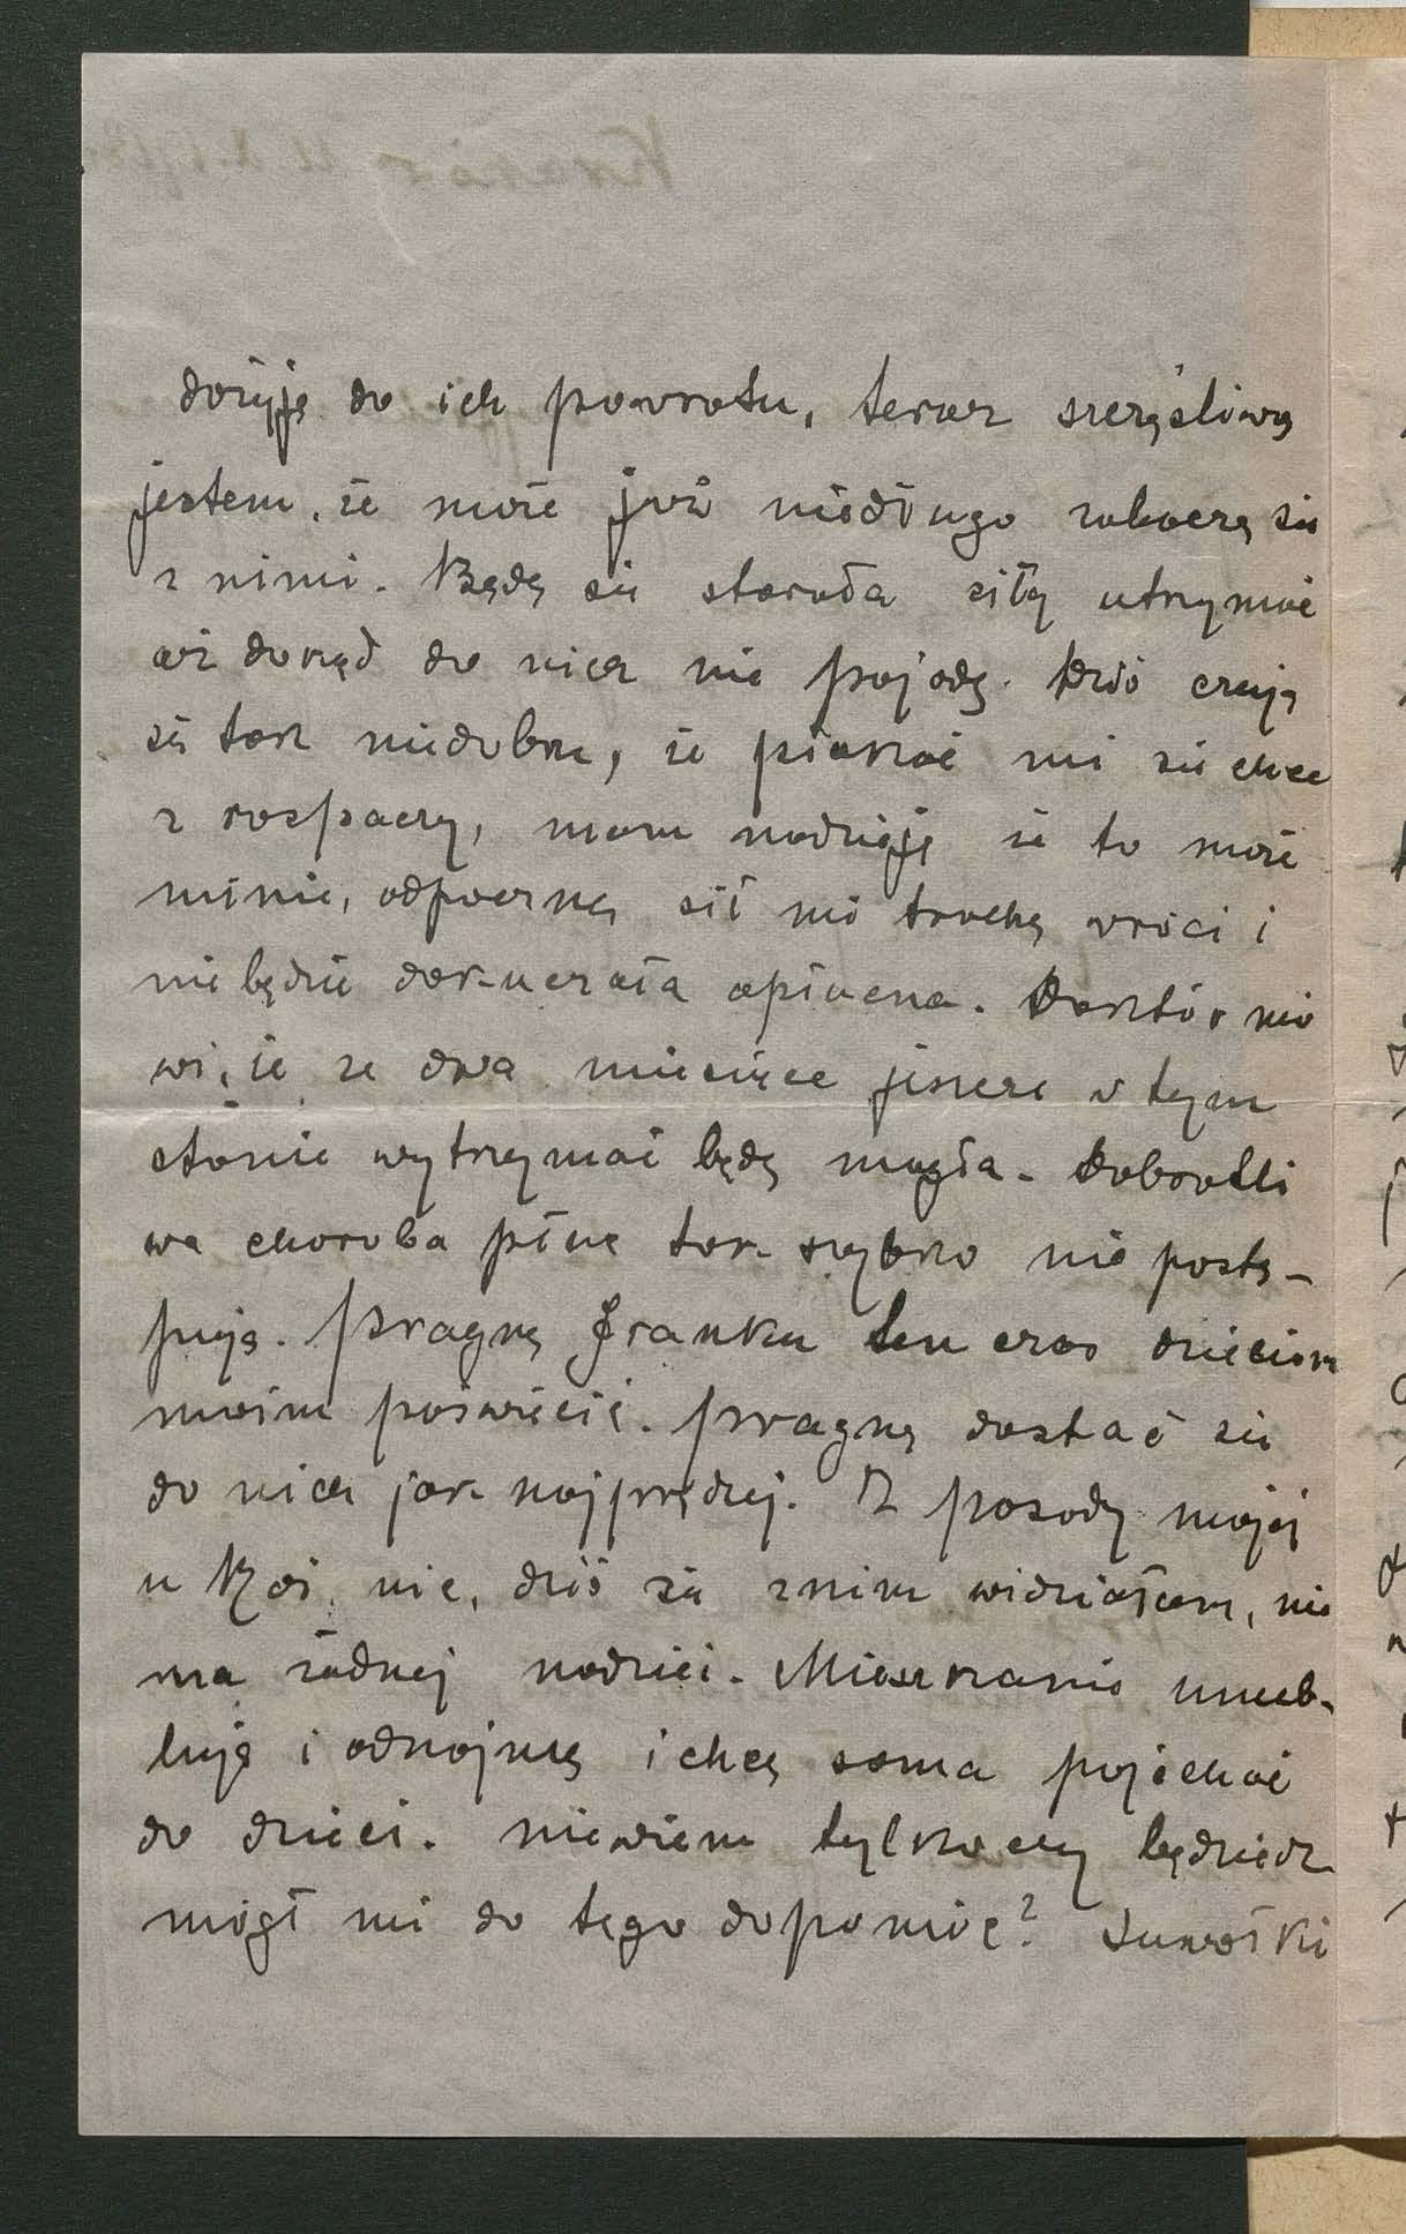 dożyję do ich powrotu, teraz szczęśliwą
jestem, że może już niedługo zobaczę się
z nimi. Będę się starała siły utrzymać
aż dokąd do nich nie pojadę. Dziś czuję
się tak niedobrze, że płakać mi się chce
z rozpaczy, mam nadzieję że to może
minie, odpocznę, sił mi trochę wróci i
nie będzie dokuczała opłucna. Doktór mó
wi, że ze dwa miesiące jeszcze w tym
stanie wytrzymać będę mogła. Dobrotli
wa choroba płuc tak szybko nie postę-
puje. Pragnę Franku ten czas dzieciom
moim poświęcić. Pragnę dostać się
do nich jak najprędzej. Z posady mojej
u nic, dziś się z nim widziałam, nie
ma żadnej nadziei. Mieszkanie umeb-
luję i odnajmę i chcę sama pojechać
do dzieci. Niewiem tylko czy będziesz
mógł mi do tego dopomóc?